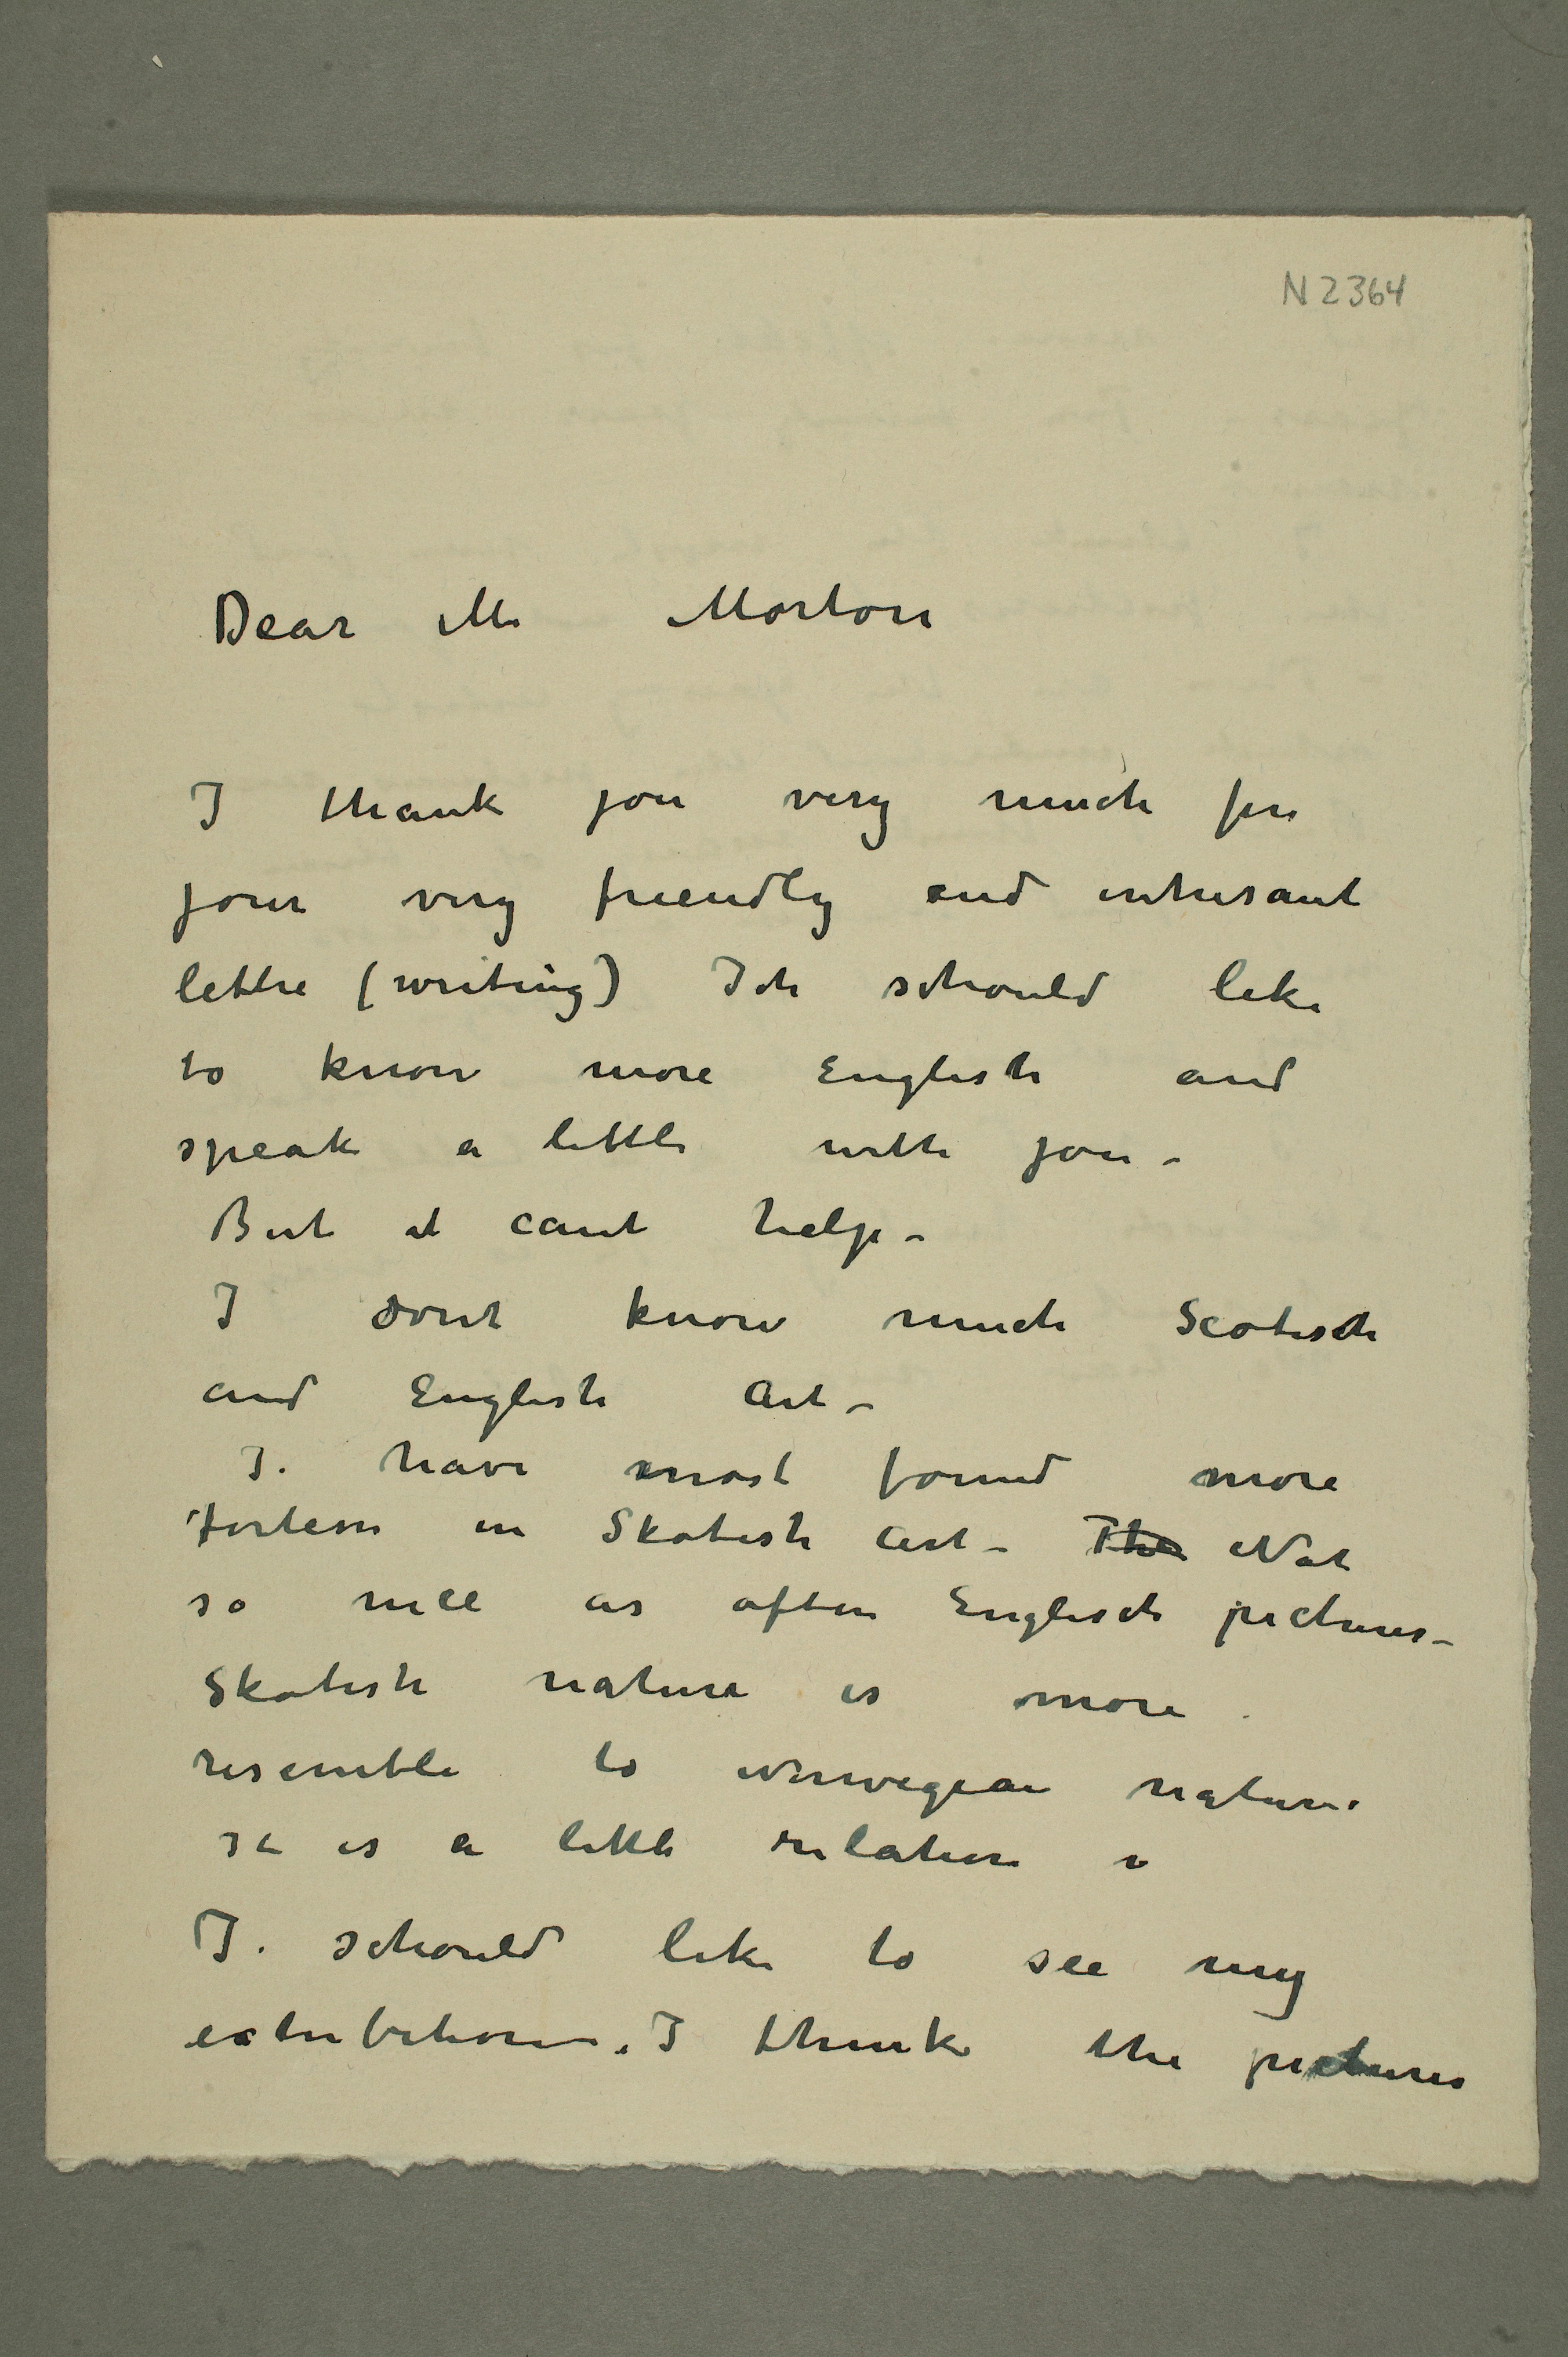 N 2364
Dear Mr Morton
I thank jou very much for
jour very friendly and intresant
lettre (writing) Ich schould like
to know more English and
speak a little with jou –
But it cant help –
I dont know much Scotisch
and English Art –
I. have most found more
in Skotish Art – The Not
so nice as often Englisch pictures –
Skotish nature is more
resemble to Norwegian nature
is a little relation
I. schould like to see my
exhibition. I think the pictures